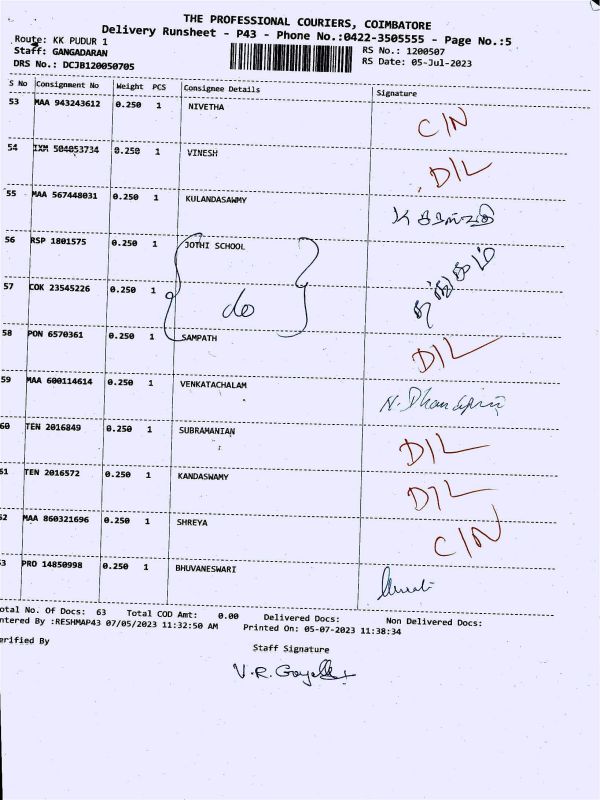 THE PROFESSIONAL COURIERS, COIMBATORE
Delivery Runsheet - P43 - Phone No.:0422-3505555 - Page No.:5
Route: KK PUDUR 1 RS No.: 1200507
Staff: GANGADARAN RS Date: 05-Jul-2023
DRS No.: DCJB120050705
S No Consignment No Weight PCS Consignee Details Signature
53 MAA 943243612 0.250 1 NIVETHA C/N
54 IXM 504053734 0.250 1 VINESH D/L
55 MAA 567448031 0.250 1 KULANDASAWMY
56 RSP 1801575 0.250 1 JOTHI SCHOOL
57 COK 23545226 0.250 1 do
58 PON 6570361 0.250 1 SAMPATH D/L
59 MAA 600114614 0.250 1 VENKATACHALAM
60 TEN 2016849 0.250 1 SUBRAMANIAN D/L
61 TEN 2016572 0.250 1 KANDASWAMY D/L
62 MAA 860321696 0.250 1 SHREYA C/N
63 PRO 14850998 0.250 1 BHUVANESWARI
otal No. Of Docs: 63 Total COD Amt: 0.00 Delivered Docs: Non Delivered Docs:
ntered By :RESHMAP43 07/05/2023 11:32:50 AM Printed On: 05-07-2023 11:38:34
erified By Staff Signature
V.R.